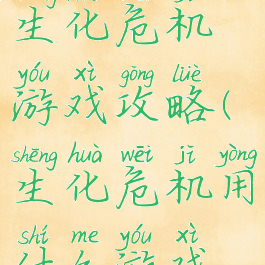 生化危机
yóu xì gōng lüè
游戏攻略(
shēng huà wēi jī yòng
生化危机用
shí me yóu xì
什么游戏